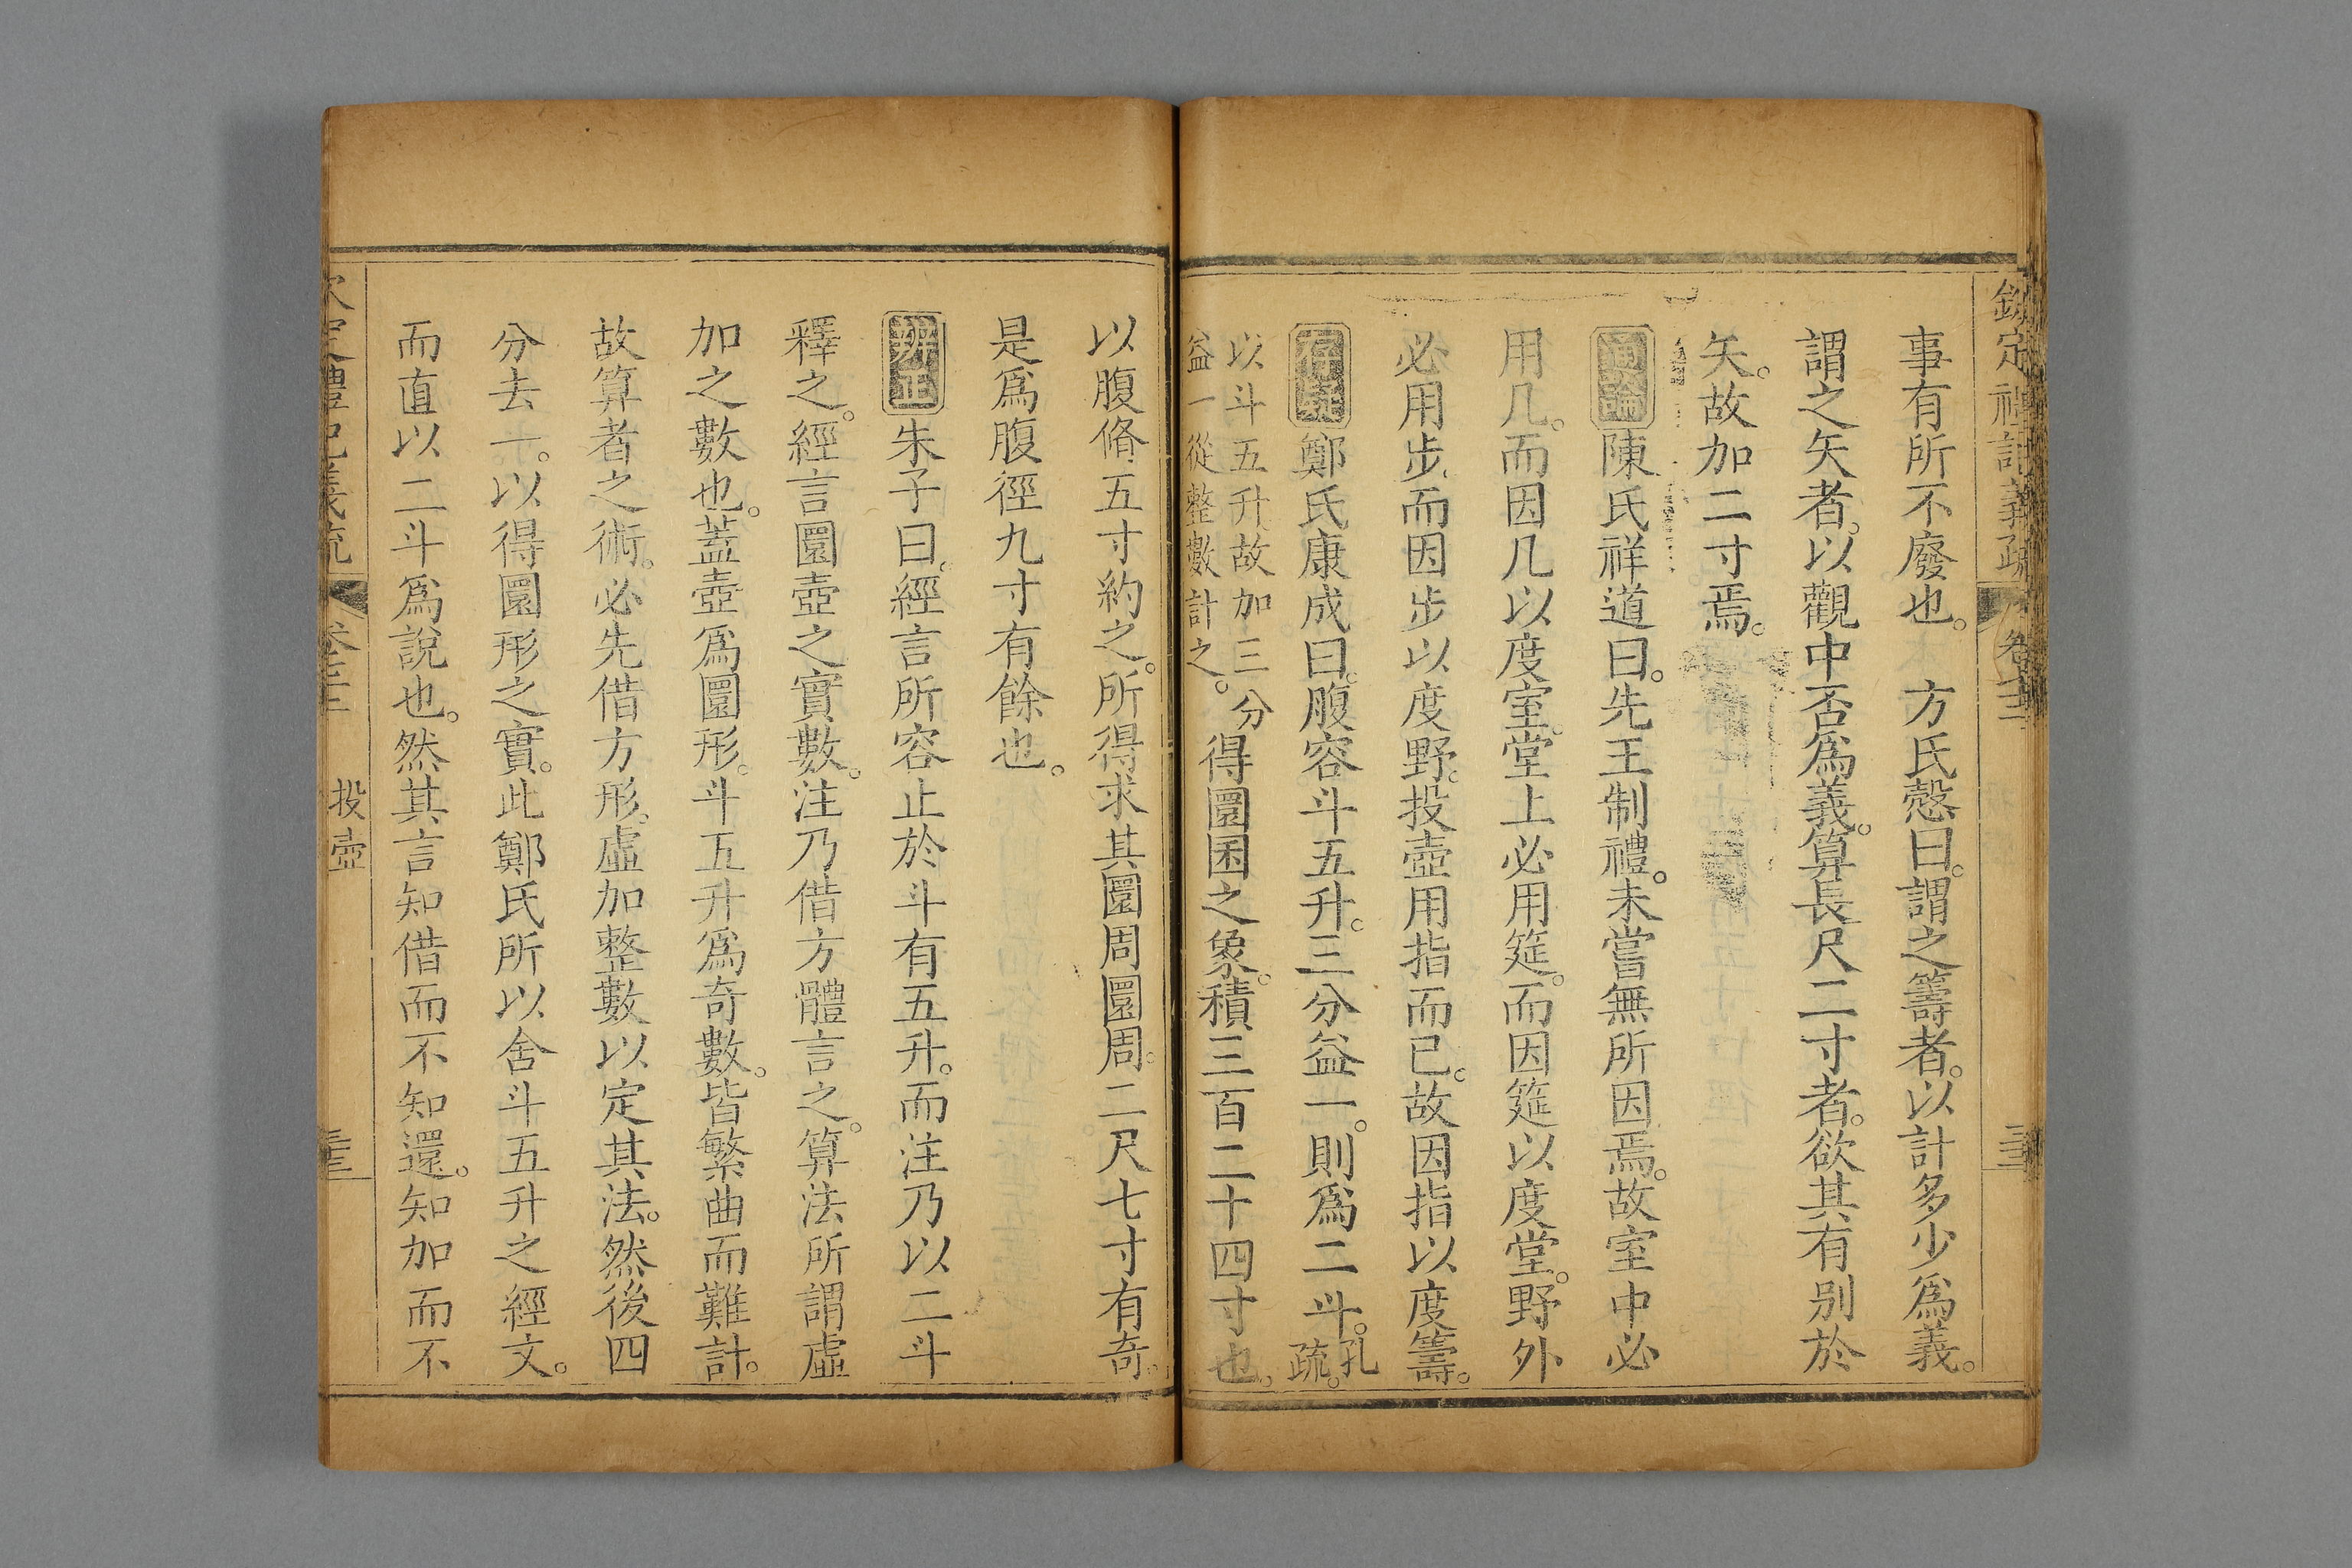 欽定禮記義疏 卷
事有所不廢也。 方氏慤曰。謂之籌者。以計多少爲義。
謂之矢者。以觀中否爲義。算長尺二寸者。欲其有别於
矢。故加二寸焉。
通論 陳氏祥道曰。先王制禮。未嘗無所因焉。故室中必
用几。而因几以度室。堂上必用筵。而因筵以度堂。野外
必用步。而因步以度野。投壺用指而已。故因指以度籌。
存疑 鄭氏康成曰。腹容斗五升。三分益一。則爲二斗。孔疏。
以斗五升。故加三分
益一。從整數計之。
得圜囷之象。積三百二十四寸也。
以腹脩五寸約之。所得求其圜周。圜周。二尺七寸有奇。
是爲腹徑九寸有餘也。
辨正 朱子曰。經言所容止於斗有五升。而注乃以二斗
釋之。經言圜壺之實數。注乃借方體言之。算法所謂虛
加之數也。蓋壺爲圜形。斗五升爲奇數。皆繁曲而難計。
故算者之術。必先借方形。虛加整數以定其法。然後四
分去一。以得圜形之實。此鄭氏所以舍斗五升之經文。
而直以二斗爲說也。然其言知借而不知還。知加而不
欽定禮記義疏 卷 投壺